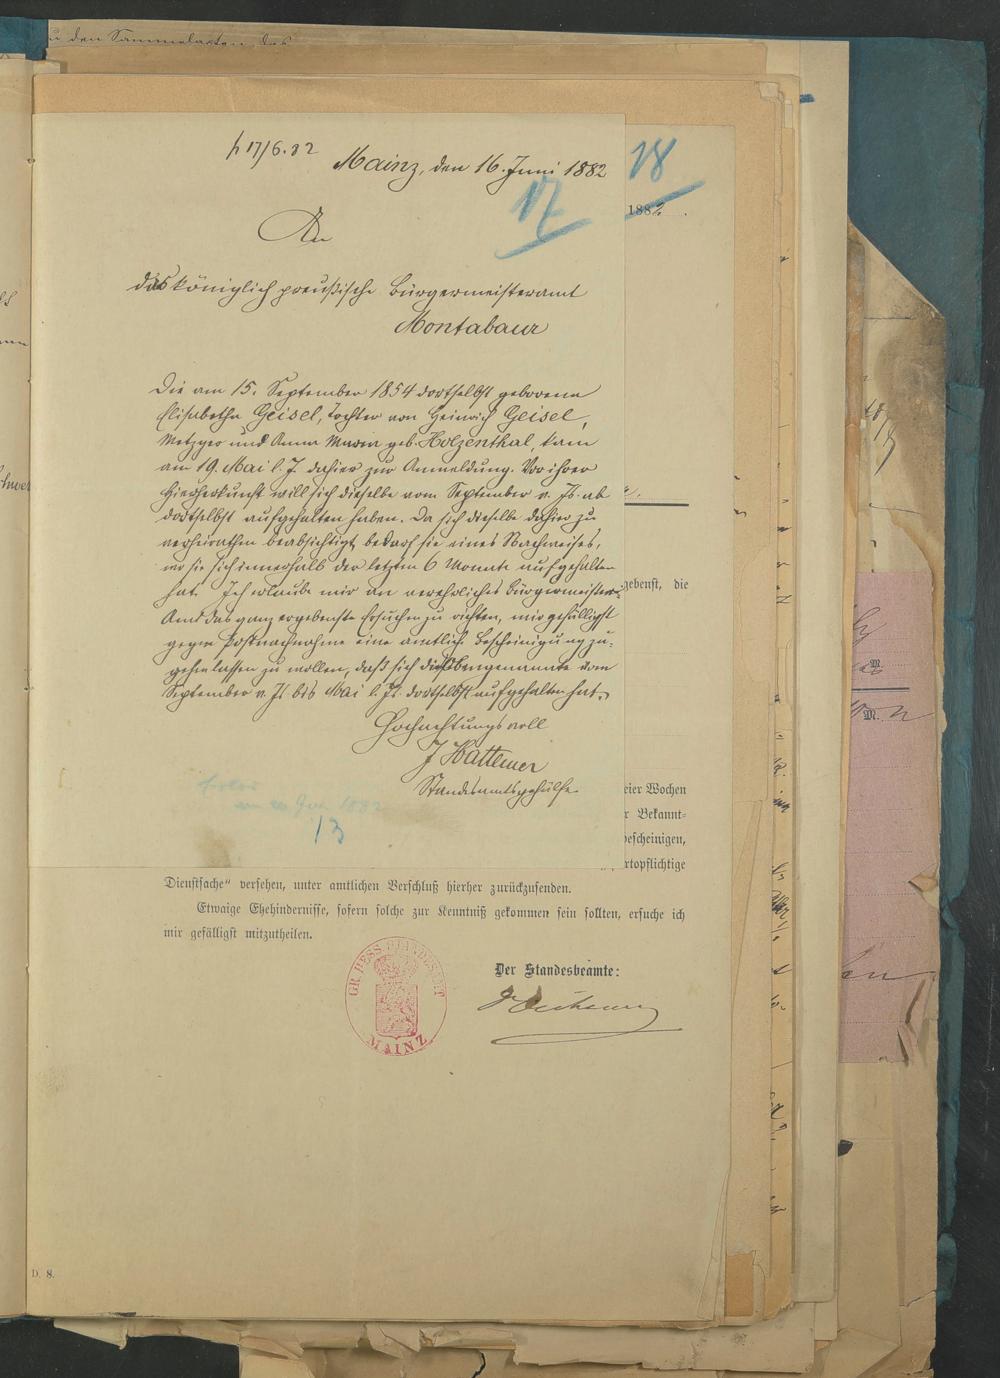 zu den Sammelakten des
p 17/6.82
Mainz, den 16. Juni 1882
17
18
1882
An
das königlich preußische Bürgermeisteramt
Montabaur
Die am 15. September 1854 dortselbst geborene
Elisabetha Geisel, Tochter von Heinrich Geisel,
Metzger und Anna Maria geb. Holzenthal, kam
am 19. Mai l. J. dahier zur Anmeldung. Vor ihrer
Hierherkunft will sich dieselbe vom September v. Js. ab
dortselbst aufgehalten haben. Da sich dieselbe dahier zu
verheirathen beabsichtigt, bedarf sie eines Nachweises,
wo sie sich innerhalb der letzten 6 Monate aufgehalten
hat. Ich erlaube mir an verehrliches Bürgermeister-
Amt das ganz ergebenste Ersuchen zu richten, mir gefälligst
gegen Postnachnahme eine amtliche Bescheinigung zu-
gehen lassen zu wollen, daß sich die Obengenannte vom
September v. Js. bis Mai l. Js. dortselbst aufgehalten hat.
Hochachtungsvoll
J Hattemer
Standesamtsgehülfe
1882
13
gebenst, die
eier Wochen
r Bekannt=
bescheinigen,
rtopflichtige
Dienstsache" versehen, unter amtlichen Verschluß hierher zurückzusenden.
Etwaige Ehehindernisse, sofern solche zur Kenntniß gekommen sein sollten, ersuche ich
mir gefälligst mitzutheilen.
Der Standesbeamte:
GR. HESS. STANDESAMT
MAINZ
D. 8.
M.
M.